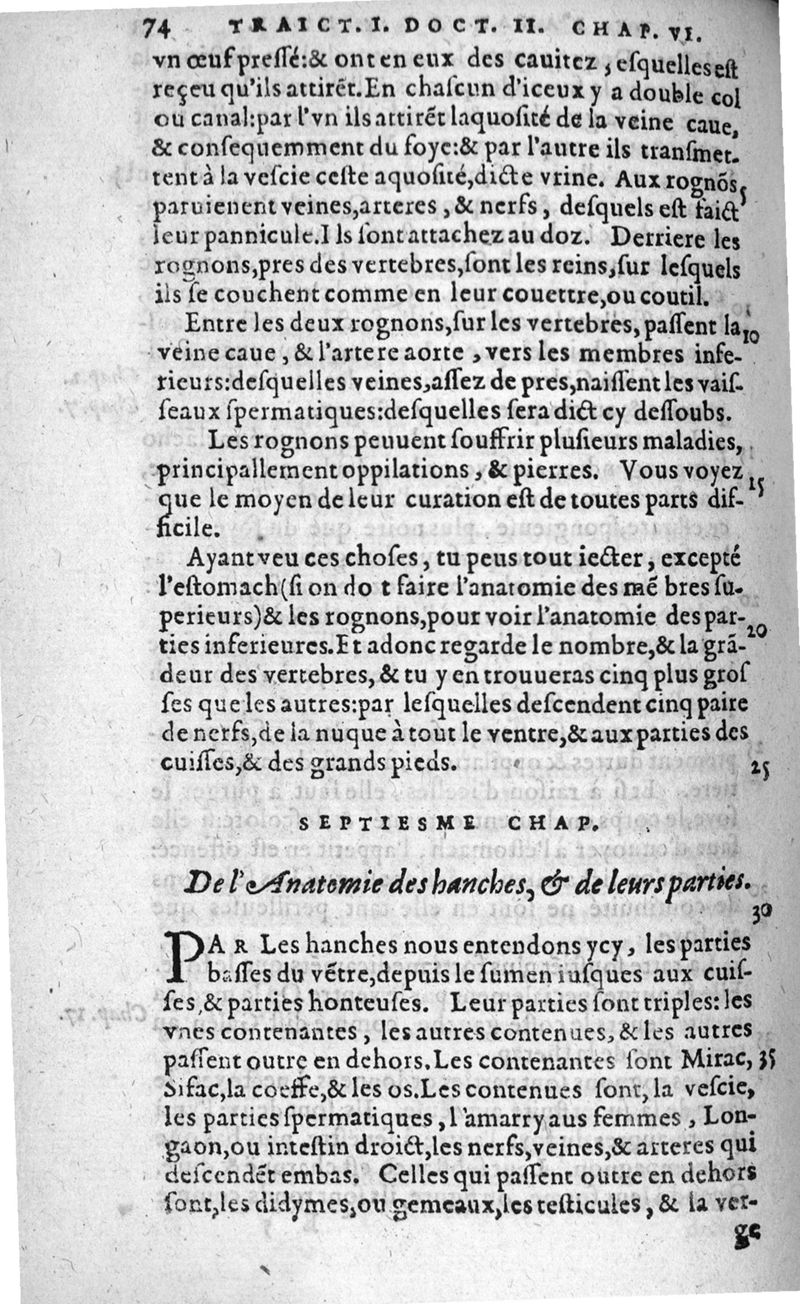 74 TRAICT. I. DOCT. II. CHAP. VI.
vn œuf preſſé:& ont en eux des cauitez, eſquelles eſt
reçeu qu'ils attirẽt. En chaſcun d'iceux y a double col
ou canal:par l'vn ils attirẽt laquoſité de la veine caue,
& conſequemment du foye:& par l'autre ils tranſmet-
tent à la veſcie ceſte aquoſité, dicte vrine. Aux rognõs,
paruienent veines, arteres, & nerfs, deſquels eſt faict 5
leur pannicule. Ils ſont attachez au doz. Derriere les
rognons, pres des vertebres, ſont les reins, ſur leſquels
ils ſe couchent comme en leur couettre, ou coutil.
Entre les deux rognons, ſur les vertebres, paſſent la 10
veine caue, & l'artere aorte, vers les membres infe-
rieurs:deſquelles veines, aſſez de pres, naiſſent les vaiſ-
ſeaux ſpermatiques:deſquelles ſera dict cy deſſoubs.
Les rognons peuuent ſouffrir pluſieurs maladies,
principallement oppilations, & pierres. Vous voyez 15
que le moyen de leur curation eſt de toutes parts dif-
ficile.
Ayant veu ces choſes, tu peus tout iecter, excepté
l'eſtomach (ſi on do t faire l'anatomie des mẽ bres ſu-
perieurs) & les rognons, pour voir l'anatomie des par- 20
ties inferieures. Et adonc regarde le nombre, & la grã-
deur des vertebres, & tu y en trouueras cinq plus groſ
ſes que les autres:par leſquelles deſcendent cinq paire
de nerfs, de la nuque à tout le ventre, & aux parties des
cuiſſes, & des grands pieds. 25
SEPTIESME CHAP.
De l'Anatomie des hanches, & de leurs parties.
30
PAR Les hanches nous entendons ycy, les parties
baſſes du vẽtre, depuis le ſumen iuſques aux cuiſ-
ſes, & parties honteuſes. Leur parties ſont triples: les
vnes contenantes, les autres contenues, & les autres
paſſent outre en dehors. Les contenantes ſont Mirac, 35
Sifac, la coeffe, & les os. Les contenues ſont, la veſcie,
les parties ſpermatiques, l'amarry aus femmes, Lon-
gaon, ou inteſtin droict, les nerfs, veines, & arteres qui
deſcendẽt embas. Celles qui paſſent outre en dehors
ſont, les didymes, ou gemeaux, les teſticules, & la ver-
ge